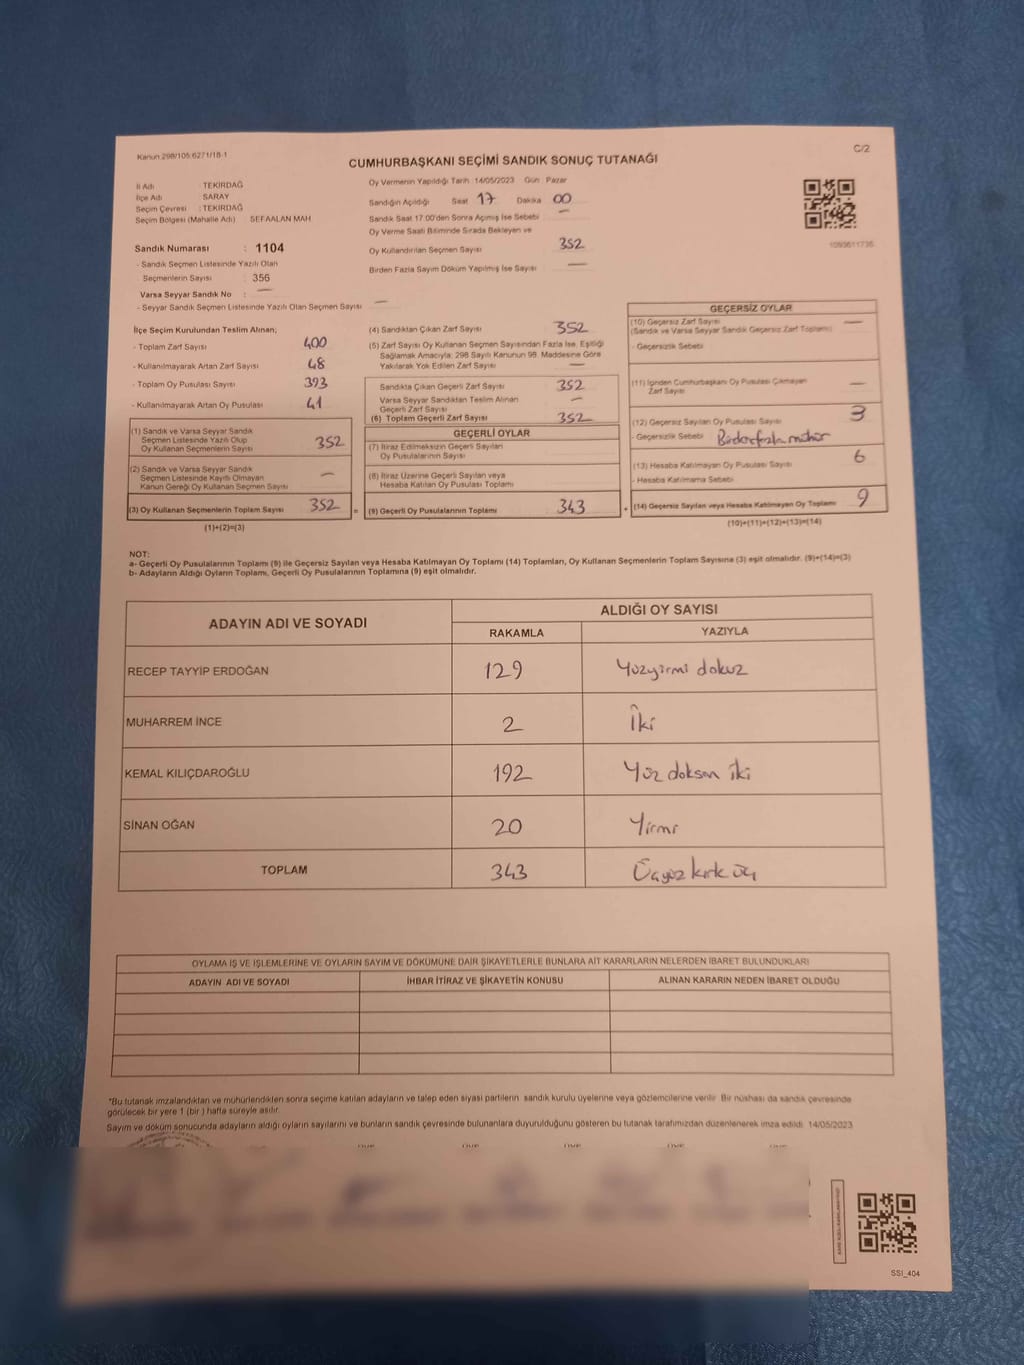 Kanun:298/105:6271/18-1
C/2
CUMHURBAŞKANI SEÇİMİ SANDIK SONUÇ TUTANAĞI
İl Adı : TEKİRDAĞ
İlçe Adı : SARAY
Seçim Çevresi : TEKİRDAĞ
Seçim Bölgesi (Mahalle Adı) : SEFAALAN MAH
Oy Vermenin Yapıldığı Tarih :14/05/2023 Gün : Pazar
Sandığın Açıldığı Saat 17 Dakika 00
Sandık Saat 17.00'den Sonra Açımış İse Sebebi —
Oy Verme Saati Bitiminde Sırada Bekleyen ve
Oy Kullandırılan Seçmen Sayısı 352
Birden Fazla Sayım Döküm Yapılmış İse Sayısı —
1093611735
Sandık Numarası : 1104
- Sandık Seçmen Listesinde Yazılı Olan
Seçmenlerin Sayısı : 356
Varsa Seyyar Sandık No : —
- Seyyar Sandık Seçmen Listesinde Yazılı Olan Seçmen Sayısı —
İlçe Seçim Kurulundan Teslim Alınan;
- Toplam Zarf Sayısı 400
- Kullanılmayarak Artan Zarf Sayısı 48
- Toplam Oy Pusulası Sayısı 393
- Kullanılmayarak Artan Oy Pusulası 41
(1) Sandık ve Varsa Seyyar Sandık
Seçmen Listesinde Yazılı Olup
Oy Kullanan Seçmenlerin Sayısı 352
(2) Sandık ve Varsa Seyyar Sandık
Seçmen Listesinde Kayıtlı Olmayan
Kanun Gereği Oy Kullanan Seçmen Sayısı —
(3) Oy Kullanan Seçmenlerin Toplam Sayısı 352 =
(1)+(2)=(3)
(4) Sandıktan Çıkan Zarf Sayısı 352
(5) Zarf Sayısı Oy Kullanan Seçmen Sayısından Fazla İse, Eşitliği
Sağlamak Amacıyla, 298 Sayılı Kanunun 98. Maddesine Göre
Yakılarak Yok Edilen Zarf Sayısı —
Sandıkta Çıkan Geçerli Zarf Sayısı 352
Varsa Seyyar Sandıktan Teslim Alınan
Geçerli Zarf Sayısı —
(6) Toplam Geçerli Zarf Sayısı 352
GEÇERLİ OYLAR
(7) İtiraz Edilmeksizin Geçerli Sayılan
Oy Pusulalarının Sayısı
(8) İtiraz Üzerine Geçerli Sayılan veya
Hesaba Katılan Oy Pusulası Toplamı
(9) Geçerli Oy Pusulalarının Toplamı 343 +
GEÇERSİZ OYLAR
(10) Geçersiz Zarf Sayısı —
(Sandık ve Varsa Seyyar Sandık Geçersiz Zarf Toplamı)
- Geçersizlik Sebebi
(11) İçinden Cumhurbaşkanı Oy Pusulası Çıkmayan —
Zarf Sayısı
(12) Geçersiz Sayılan Oy Pusulası Sayısı 3
- Geçersizlik Sebebi Birden fazla mühür
(13) Hesaba Katılmayan Oy Pusulası Sayısı 6
- Hesaba Katılmama Sebebi
(14) Geçersiz Sayılan veya Hesaba Katılmayan Oy Toplamı 9
(10)+(11)+(12)+(13)=(14)
NOT:
a- Geçerli Oy Pusulalarının Toplamı (9) ile Geçersiz Sayılan veya Hesaba Katılmayan Oy Toplamı (14) Toplamları, Oy Kullanan Seçmenlerin Toplam Sayısına (3) eşit olmalıdır. (9)+(14)=(3)
b- Adayların Aldığı Oyların Toplamı, Geçerli Oy Pusulalarının Toplamına (9) eşit olmalıdır.
ADAYIN ADI VE SOYADI
ALDIĞI OY SAYISI
RAKAMLA YAZIYLA
RECEP TAYYİP ERDOĞAN 129 Yüzyirmi dokuz
MUHARREM İNCE 2 İki
KEMAL KILIÇDAROĞLU 192 Yüz doksan iki
SİNAN OĞAN 20 Yirmi
TOPLAM 343 Üçyüz kırk üç
OYLAMA İŞ VE İŞLEMLERİNE VE OYLARIN SAYIM VE DÖKÜMÜNE DAİR ŞİKAYETLERLE BUNLARA AİT KARARLARIN NELERDEN İBARET BULUNDUKLARI
ADAYIN ADI VE SOYADI İHBAR İTİRAZ VE ŞİKAYETİN KONUSU ALINAN KARARIN NEDEN İBARET OLDUĞU
*Bu tutanak imzalandıktan ve mühürlendikten sonra seçime katılan adayların ve talep eden siyasi partilerin sandık kurulu üyelerine veya gözlemcilerine verilir. Bir nüshası da sandık çevresinde
görülecek bir yere 1 (bir ) hafta süreyle asılır.
Sayım ve döküm sonucunda adayların aldığı oyların sayılarını ve bunların sandık çevresinde bulunanlara duyurulduğunu gösteren bu tutanak tarafımızdan düzenlenerek imza edildi. 14/05/2023
SSI_404